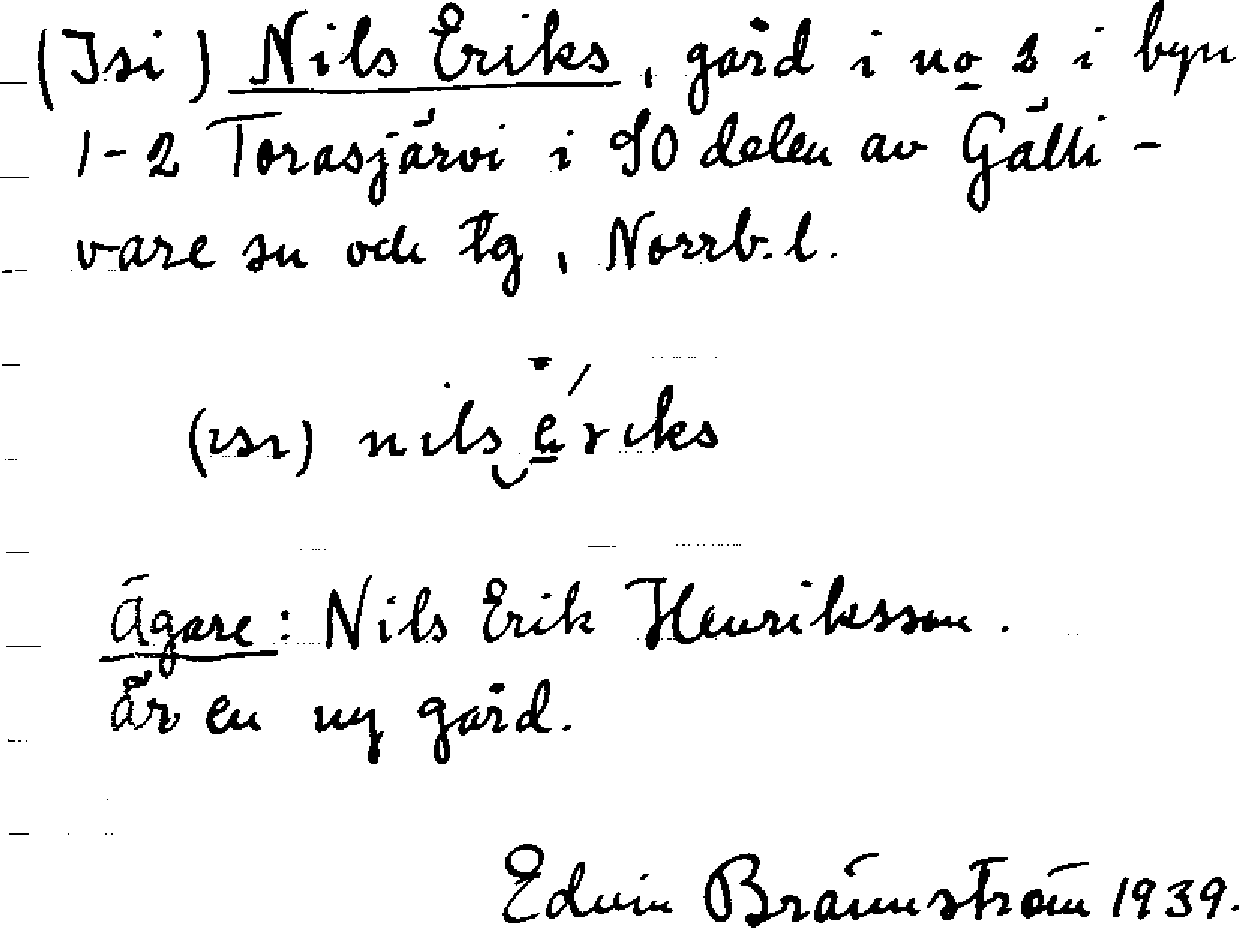 (Isi) Nils Eriks, gård i no 2 i byn
1-2 Torasjärvi i SO delen av Gälli-
vare sn och tg, Norrb. l.
(ısı) nıls‿é̱rıks
Ägare: Nils Erik Henriksson.
Är en ny gård.
Edvin Brännström 1939.